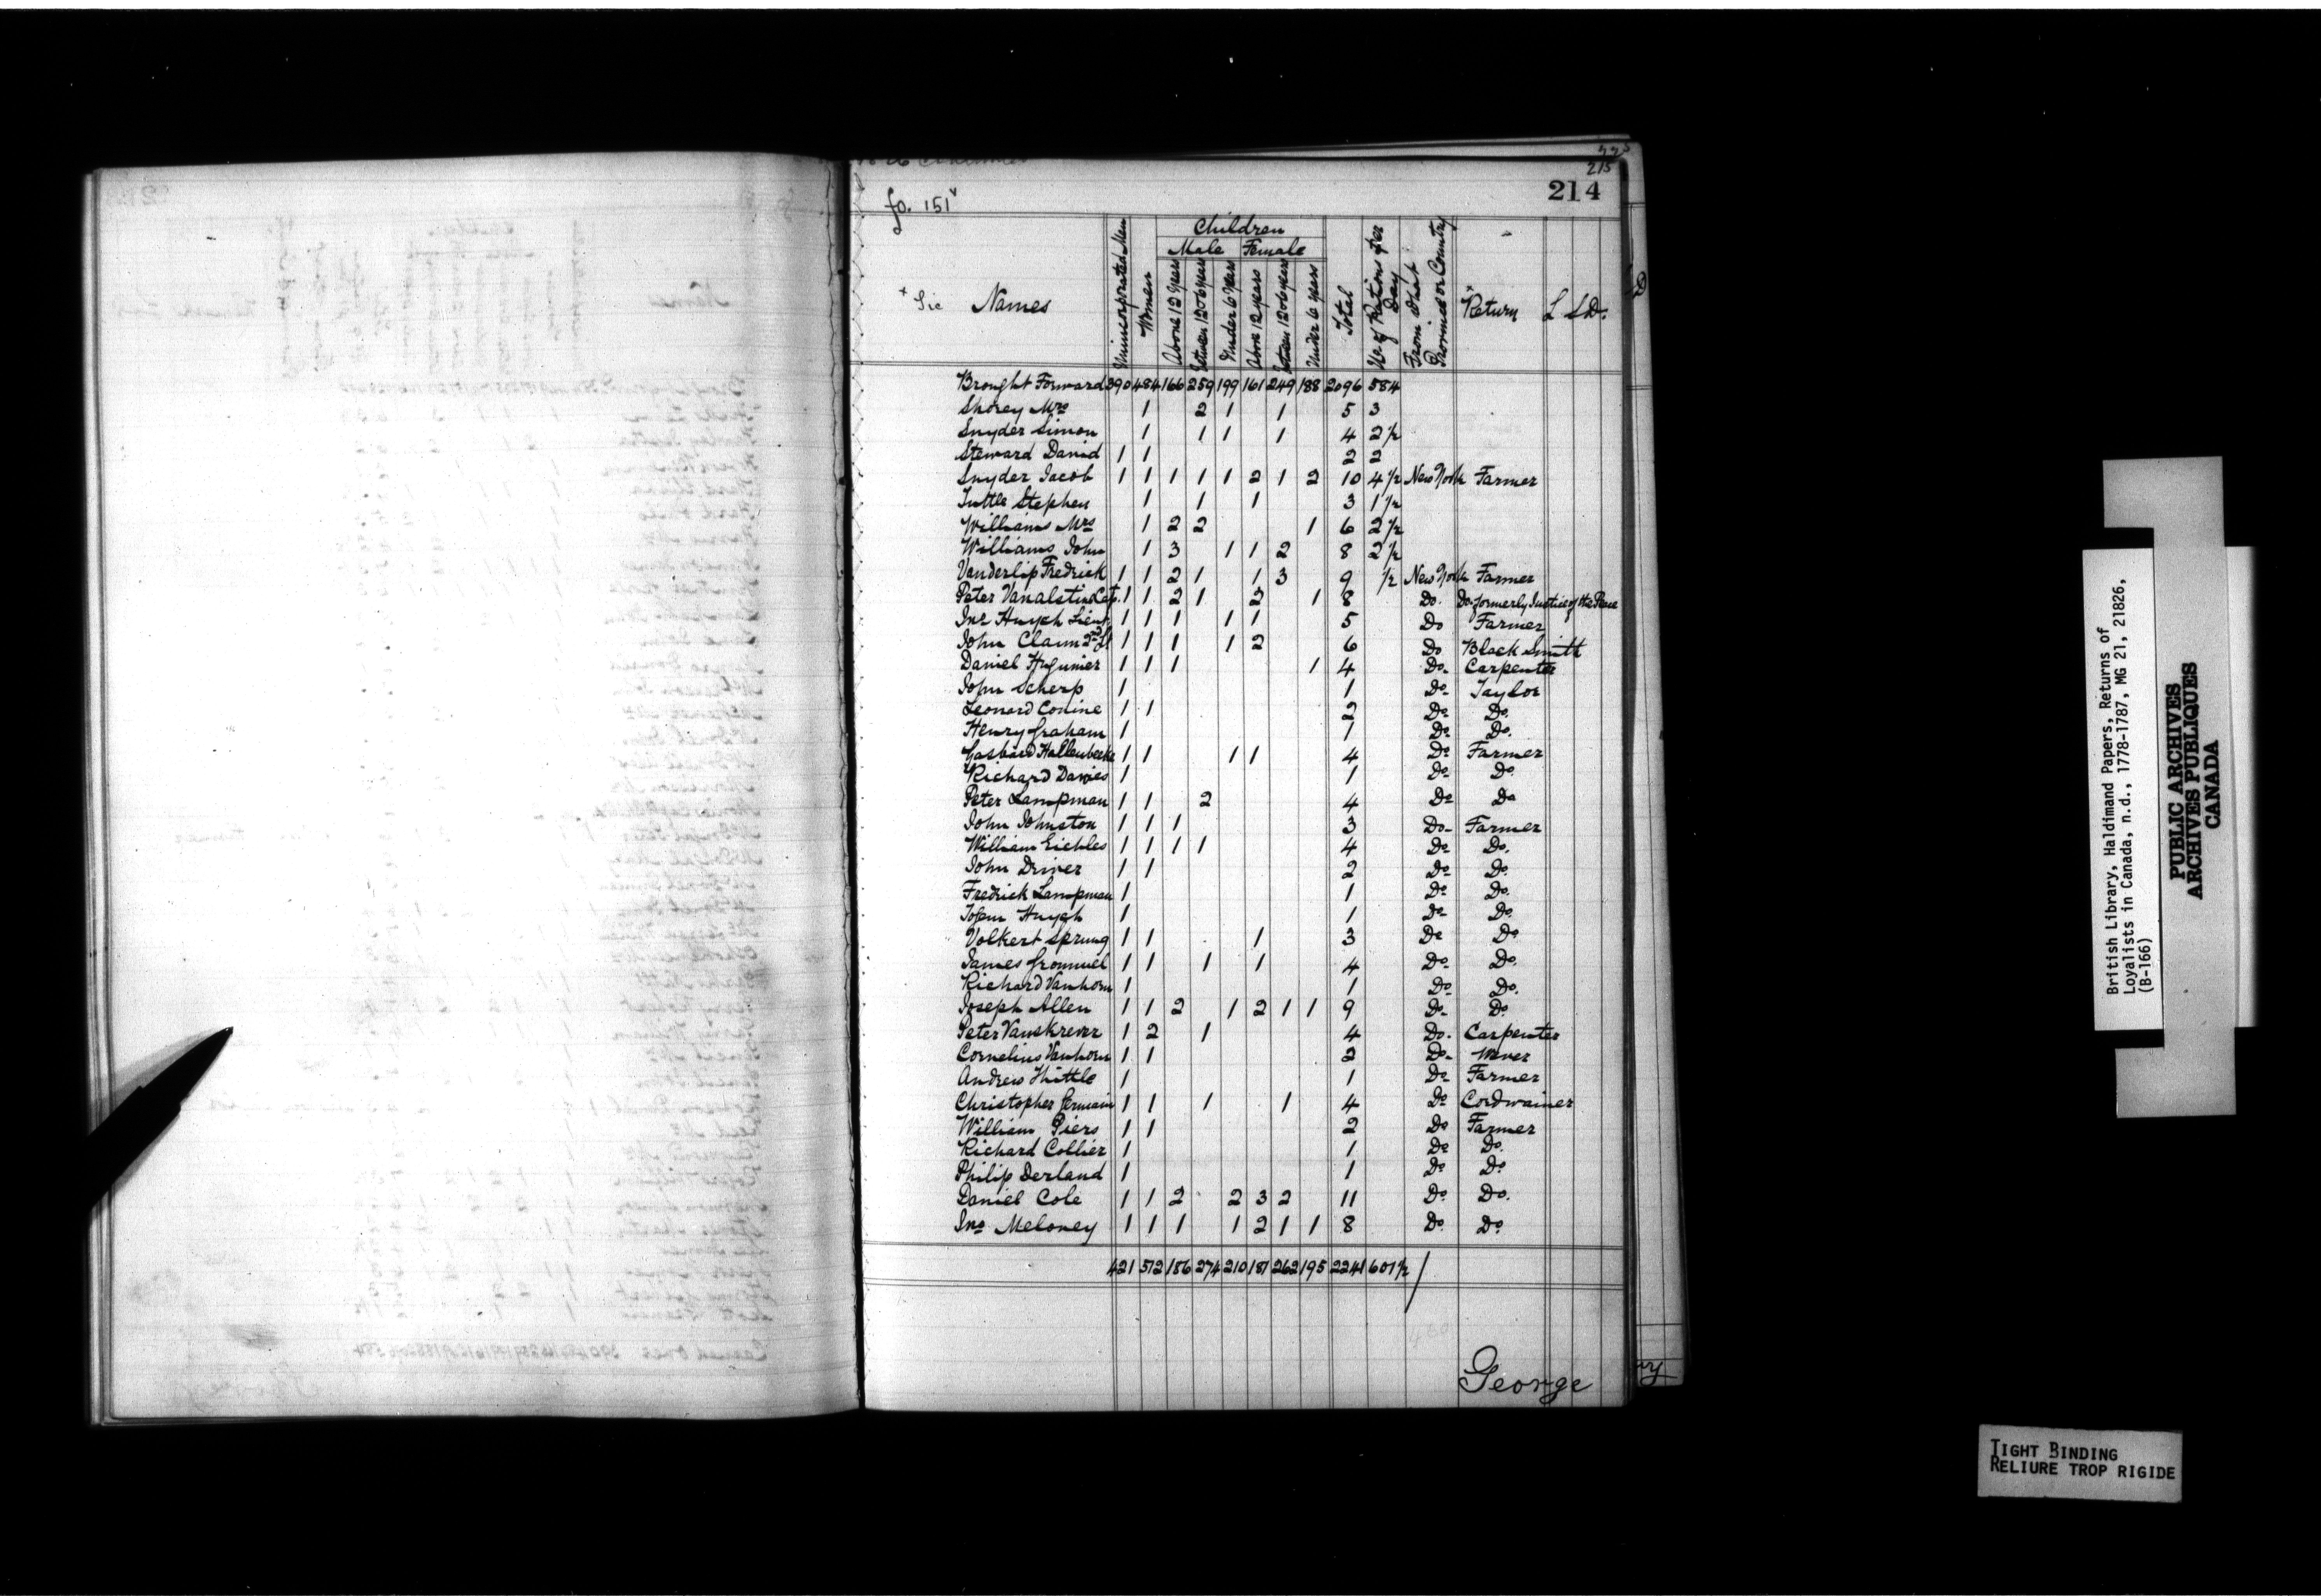 225
215
214
fo. 151v
Children
Male Female
x Sic Names Unincorporated Men Women Above 12 Years Between 12 & 6 Years Under 6 Years Above 12 Years Between 12 & 6 years Under 6 years Total No of Rations per Day From What Province or Country x Return L S D.
Brought Forward 390 484 166 259 199 161 249 188 2096 584
Shorey Mrs 1 2 1 1 5 3
Snyder Simon 1 1 1 1 4 2 1/2
Steward David 1 1 2 2
Snyder Jacob 1 1 1 1 1 2 1 2 10 4 1/2 New York Farmer
Tuttle Stephen 1 1 1 3 1 1/2
Williams Mrs 1 2 2 1 6 2 1/2
Williams John 1 3 1 1 2 8 2 1/2
Vanderlip Fredrick 1 1 2 1 1 3 9 1/2 New York Farmer
Peter Vanalstin Cap. 1 1 2 1 2 1 8 Do. Do. formerly Justice of the Peace
Jno Huygh Lieut 1 1 1 1 1 5 Do Farmer
John Claum 2nd Lt 1 1 1 1 2 6 Do Black Smith
Daniel Hugunier 1 1 1 1 4 Do. Carpenter
John Scherp 1 1 Do. Taylor
Leonard Conine 1 1 2 Do. Do.
Henry Graham 1 1 Do. Do.
Gasbard Hallenbecke 1 1 1 1 4 Do Farmer
Richard Davies 1 1 Do. Do.
Peter Lampman 1 1 2 4 Do Do
John Johnston 1 1 1 3 Do. Farmer
William Eichles 1 1 1 1 4 Do. Do.
John Driver 1 1 2 Do. Do.
Fredrick Lampman 1 1 Do. Do.
John Huygh 1 1 Do. Do.
Volkert Sprung 1 1 1 3 Do Do
James Grommel 1 1 1 1 4 Do. Do.
Richard Vanhorn 1 1 Do. Do.
Joseph Allen 1 1 2 1 2 1 1 9 Do. Do.
Peter Vanskrever 1 2 1 4 Do. Carpenter
Cornelius Vanhorn 1 1 2 Do. Wever
Andrew Thittle 1 1 Do. Farmer
Christopher Germain 1 1 1 1 4 Do Cordwainer
William Piers 1 1 2 Do Farmer
Richard Collier 1 1 Do Do.
Philip Derland 1 1 Do Do
Daniel Cole 1 1 2 2 3 2 11 Do. Do.
Jno Meloney 1 1 1 1 2 1 1 8 Do. Do.
421 512 186 274 210 181 262 195 2241 601 1/2
George
British Library, Haldimand Papers, Returns of
Loyalists in Canada, n.d., 1778-1787, MG 21, 21826,
(B-166)
PUBLIC ARCHIVES
ARCHIVES PUBLIQUES
CANADA
TIGHT BINDING
RELIURE TROP RIGIDE